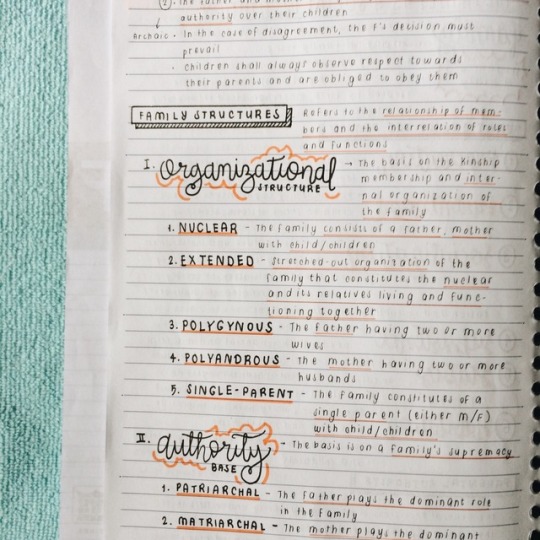 2. The father and mother
authority over their children
Archaic · In the case of disagreement, the F's decision must
prevail
· Children shall always observe respect towards
their parents and are obliged to obey them
FAMILY STRUCTURES Refers to the relationship of mem-
bers and the interrelation of roles
and functions
I. organizational → The basis on the kinship
STRUCTURE membership and inter-
nal organization of
the family
1. NUCLEAR - The family consists of a father, mother
with child/children
2. EXTENDED - Stretched-out organization of the
family that constitutes the nuclear
and its relatives living and func-
tioning together
3. POLYGYNOUS - The father having two or more
wives
4. POLYANDROUS - The mother having two or more
husbands
5. SINGLE-PARENT - The family constitutes of a
single parent (either M/F)
with child/children
II. authority → The basis is on a family's supremacy
BASE
1. PATRIARCHAL - The father plays the dominant role
in the family
2. MATRIARCHAL - The mother plays the dominant